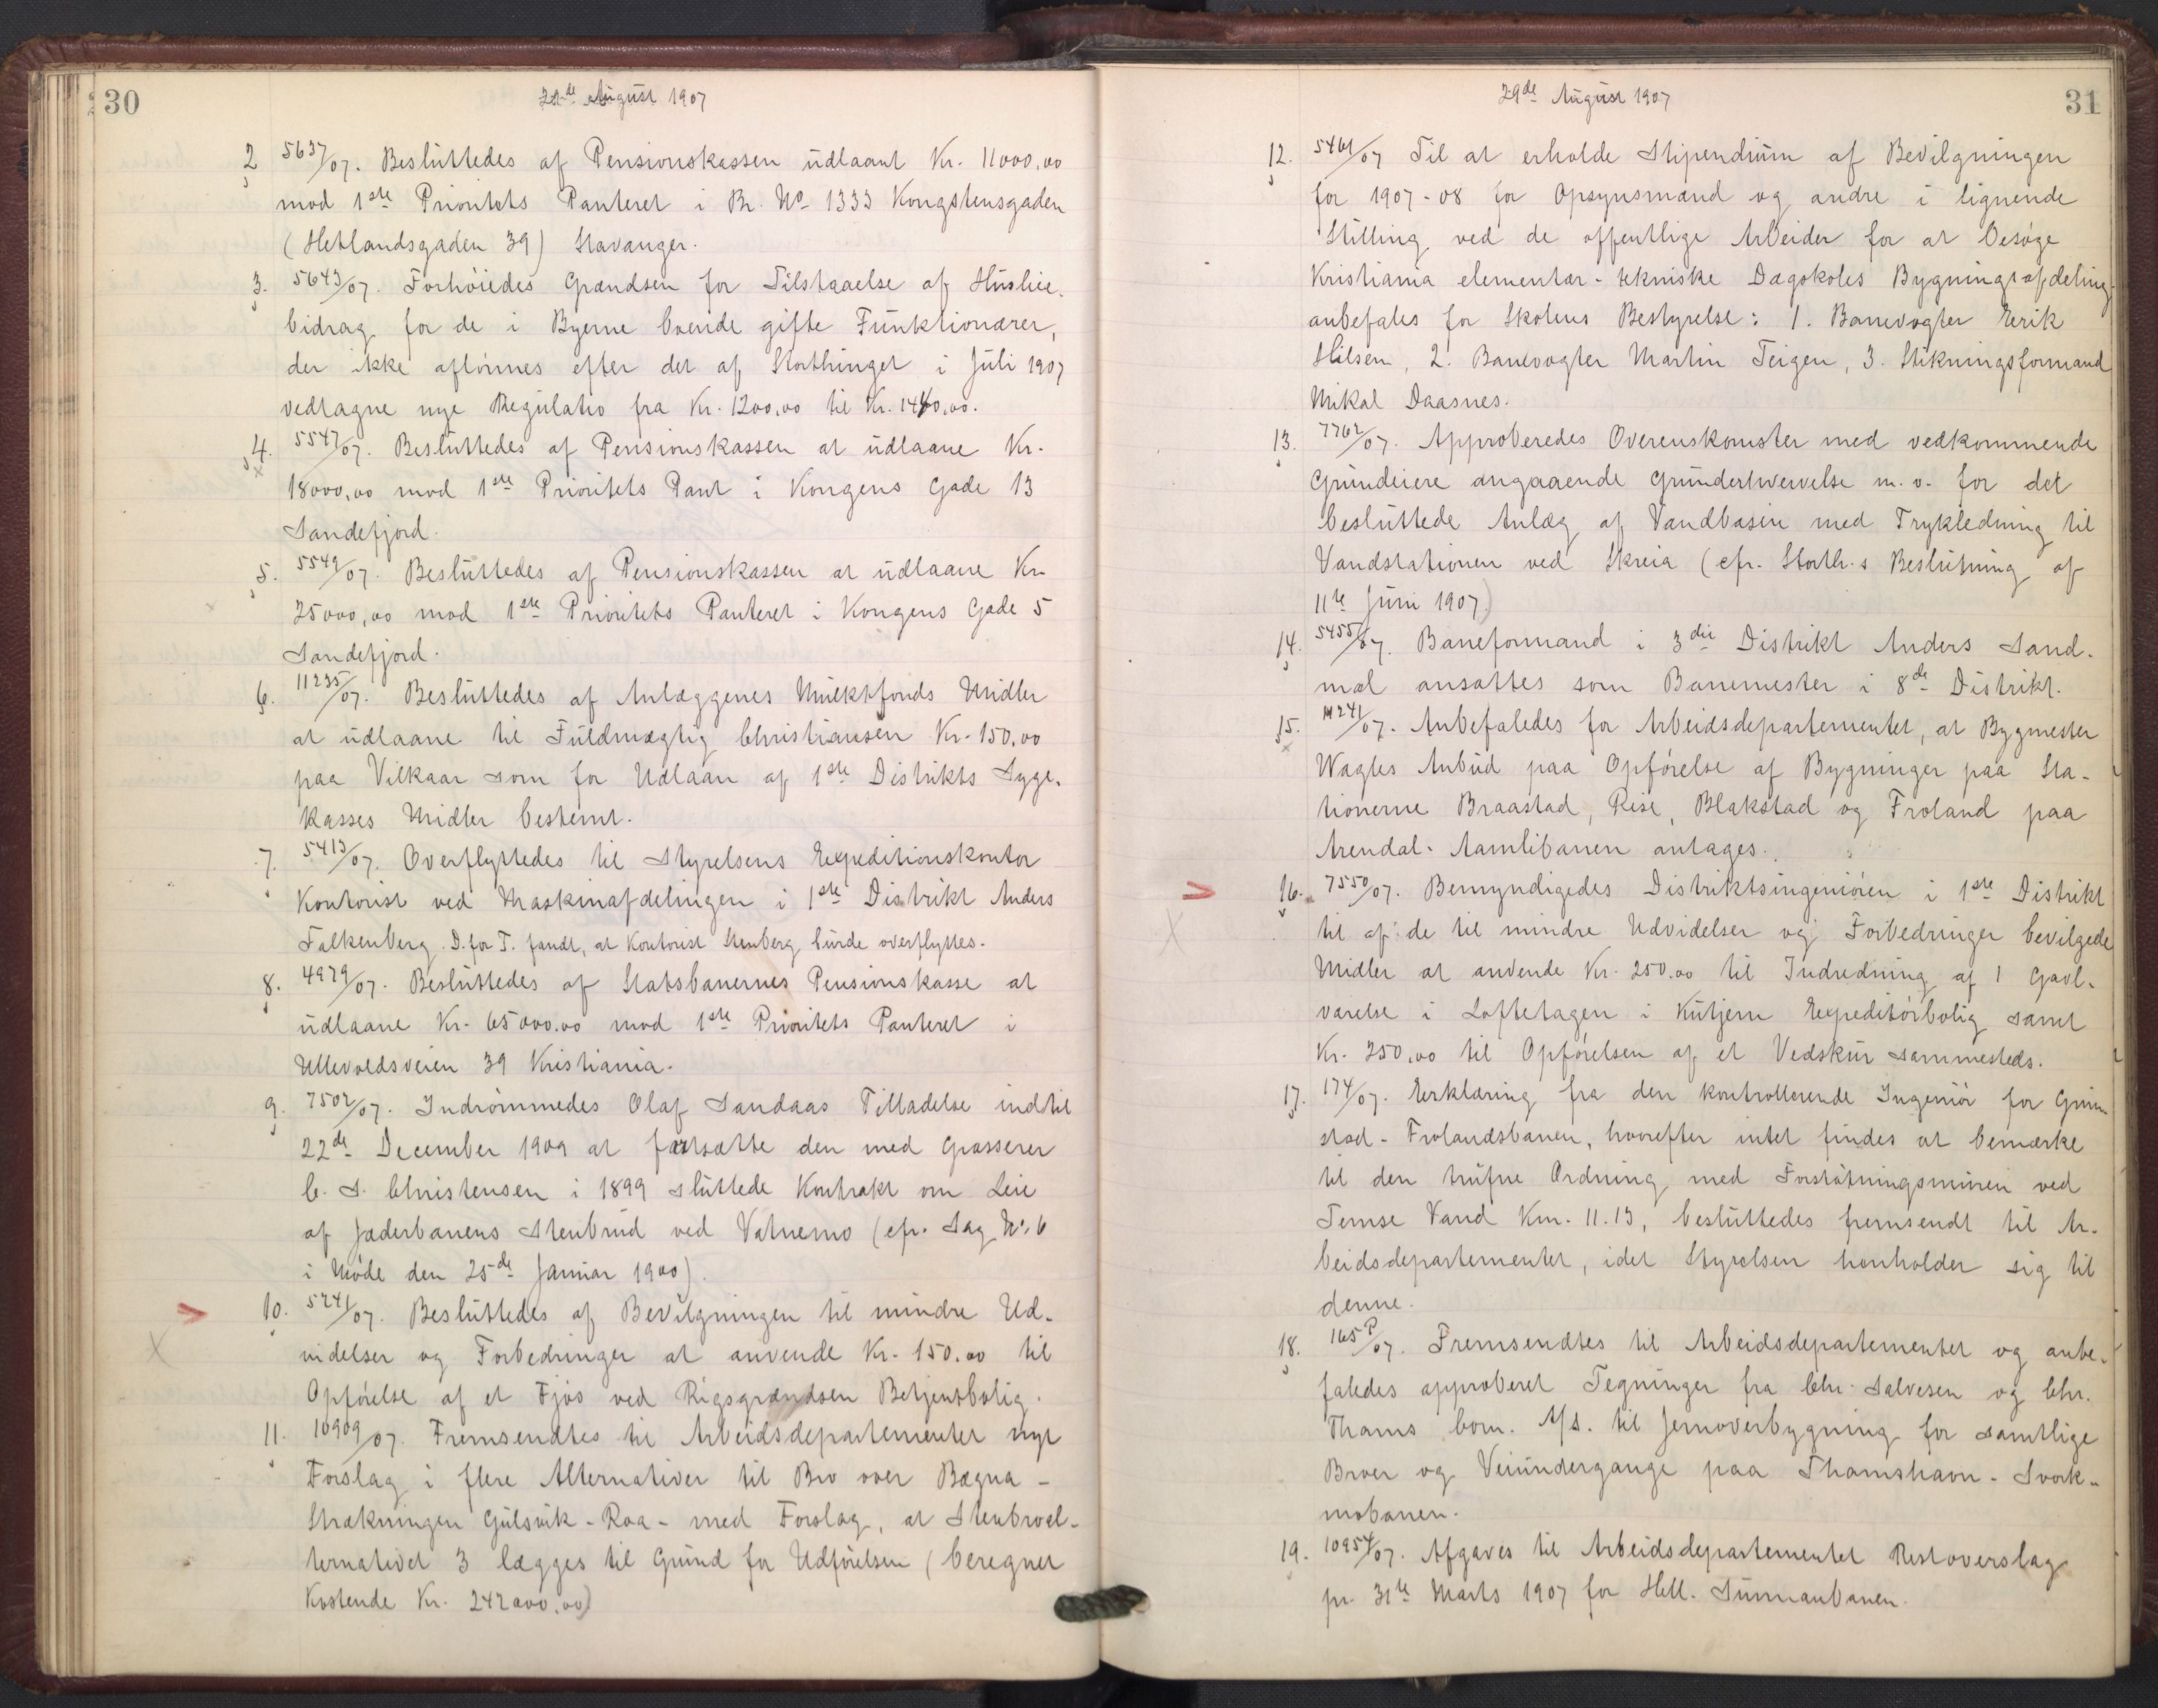 30
22de August 1907
2 5637/07. Besluttedes af Pensionskassen udlaant Kr. 11000,00
mod 1ste Prioritets Panteret i Br. No 1333 Kongstensgaden
(Hetlandsgaden 39) Stavanger.
3. 5643/07. Forhøiedes Grændsen for Tilstaaelse af Husleie-
bidrag for de i Byerne boende gifte Funktionærer,
der ikke aflønnes efter det af Storthinget i Juli 1907
vedtagne nye Regulativ fra Kr. 1200,00 til Kr. 1440,00.
4. 5547/07. Besluttedes af Pensionskassen at udlaane Kr.
18000,00 mod 1ste Prioritets Pant i Kongens Gade 13
Sandefjord.
5. 5549/07. Besluttedes af Pensionskassen at udlaane Kr.
25000,00 mod 1ste Prioritets Panteret i Kongens Gade 5
Sandefjord.
6. 11235/07. Besluttedes af Anlæggenes Mulktfonds Midler
at udlaane til Fuldmægtig Christiansen Kr. 150,00
paa Vilkaar som for Udlaan af 1ste Distrikts Syge-
kasses Midler bestemt.
7. 5413/07. Overflyttedes til Styrelsens Expeditionskontor
Kontorist ved Maskinafdelingen i 1ste Distrikt Anders
Falkenberg. D. for T. fandt, at Kontorist Stenberg burde overflyttes.
8. 4979/07. Besluttedes af Statsbanernes Pensionskasse at
udlaane Kr. 65000,00 mod 1ste Prioritets Panteret i
Ullevoldsveien 39 Kristiania.
9. 7502/07. Indrømmedes Olaf Sandaas Tilladelse indtil
22de December 1909 at fortsætte den med Grosserer
C. S. Christensen i 1899 sluttede Kontrakt om Leie
af Jæderbanens Stenbrud ved Vatnemo (cfr. Sag No. 6
i Møde den 25de Januar 1900).
10. 5241/07. Besluttedes af Bevilgningen til mindre Ud-
videlser og Forbedringer at anvende Kr. 150.00 til
Opførelse af et Fjøs ved Rigsgrændsen Betjentbolig.
11. 10909/07. Fremsendtes til Arbeidsdepartementet nyt
Forslag i flere Alternativer til Bro over Bægna -
Strækningen Gulsvik - Roa - med Forslag, at Stenbroal-
ternativet 3 lægges til Grund for Udførelsen (beregnet
Kostende Kr. 242000.00)
29de August 1907
31
12. 5461/07 Til at erholde Stipendium af Bevilgningen
for 1907-08 for Opsynsmænd og andre i lignende
Stilling ved de offentlige Arbeider for at besøge
Kristiania elementær-tekniske Dagskoles Bygningsafdeling
anbefales for Skolens Bestyrelse: 1. Banevogter Eerik
Hilsen, 2. Banevogter Martin Teigen, 3. Stikningsformand
Mikal Daasnes.
13. 7762/07. Approberedes Overenskomster med vedkommende
Grundeiere angaaende Grunderhvervelse m.v. for det
besluttede Anlæg af Vandbasin med Trykledning til
Vandstationen ved Skreia (cfr. Storth.s Beslutning af
11te Juni 1907)
14. 5455/07. Baneformand i 3die Distrikt Anders Sand-
mæl ansattes som Banemester i 8de Distrikt.
15. 11241/07. Anbefaledes for Arbeidsdepartementet, at Bygmester
Wagles Anbud paa Opførelse af Bygninger paa Sta-
tionerne Braastad, Rise, Blakstad og Froland paa
Arendal-Aamlibanen antages.
16. 7550/07. Bemyndigedes Distriktsingeniøren i 1ste Distrikt
til af de til mindre Udvidelser og Forbedringer bevilgede
Midler at anvende Kr. 250.00 til Indredning af 1 Gavl-
værelse i Loftetagen i Kutjern Expeditørbolig samt
Kr. 250,00 til Opførelsen af et Vedskur sammesteds.
17. 174/07. Erklæring fra den kontrollerende Ingeniør for Grim-
stad-Frolandsbanen, hvorefter intet findes at bemærke
til den trufne Ordning med Forstøtningsmuren ved
Temse Vand Km. 11.13, besluttedes fremsendt til Ar-
beidsdepartementet, idet Styrelsen henholder sig til
denne.
18. 165P/07. Fremsendtes til Arbeidsdepartementet og anbe-
faledes approberet Tegninger fra Chr. Salvesen og Chr.
Thams Com. A/S. til Jernoverbygning for samtlige
Broer og Veiundergange paa Thamshavn-Svork-
mobanen.
19. 10954/07. Afgaves til Arbeidsdepartementet Restoverslag
pr. 31te Marts 1907 for Hell-Sunnanbanen.